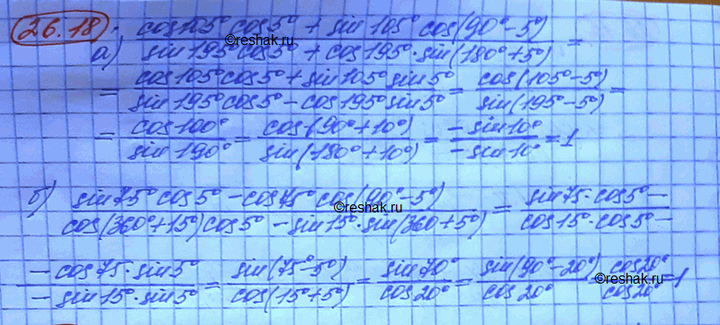 26.18.
а) (cos105°cos5° + sin105°cos(90°-5°))/(sin195°cos5° + cos195°·sin(180°+5°)) =
= (cos105°cos5° + sin105°sin5°)/(sin195°cos5° - cos195°sin5°) = cos(105°-5°)/sin(195°-5°) =
= cos100°/sin190° = cos(90°+10°)/sin(180°+10°) = -sin10°/-sin10° = 1
б) (sin75°cos5° - cos75°cos(90°-5°))/(cos(360°+15°)cos5° - sin15°·sin(360+5°)) = (sin75·cos5° -)/(cos15°·cos5° -)
(-cos75·sin5°)/(-sin15°·sin5°) = sin(75°-5°)/cos(15°+5°) = sin70°/cos20° = sin(90°-20°)/cos20° = cos20°/cos20° = 1
©reshak.ru
©reshak.ru
©reshak.ru